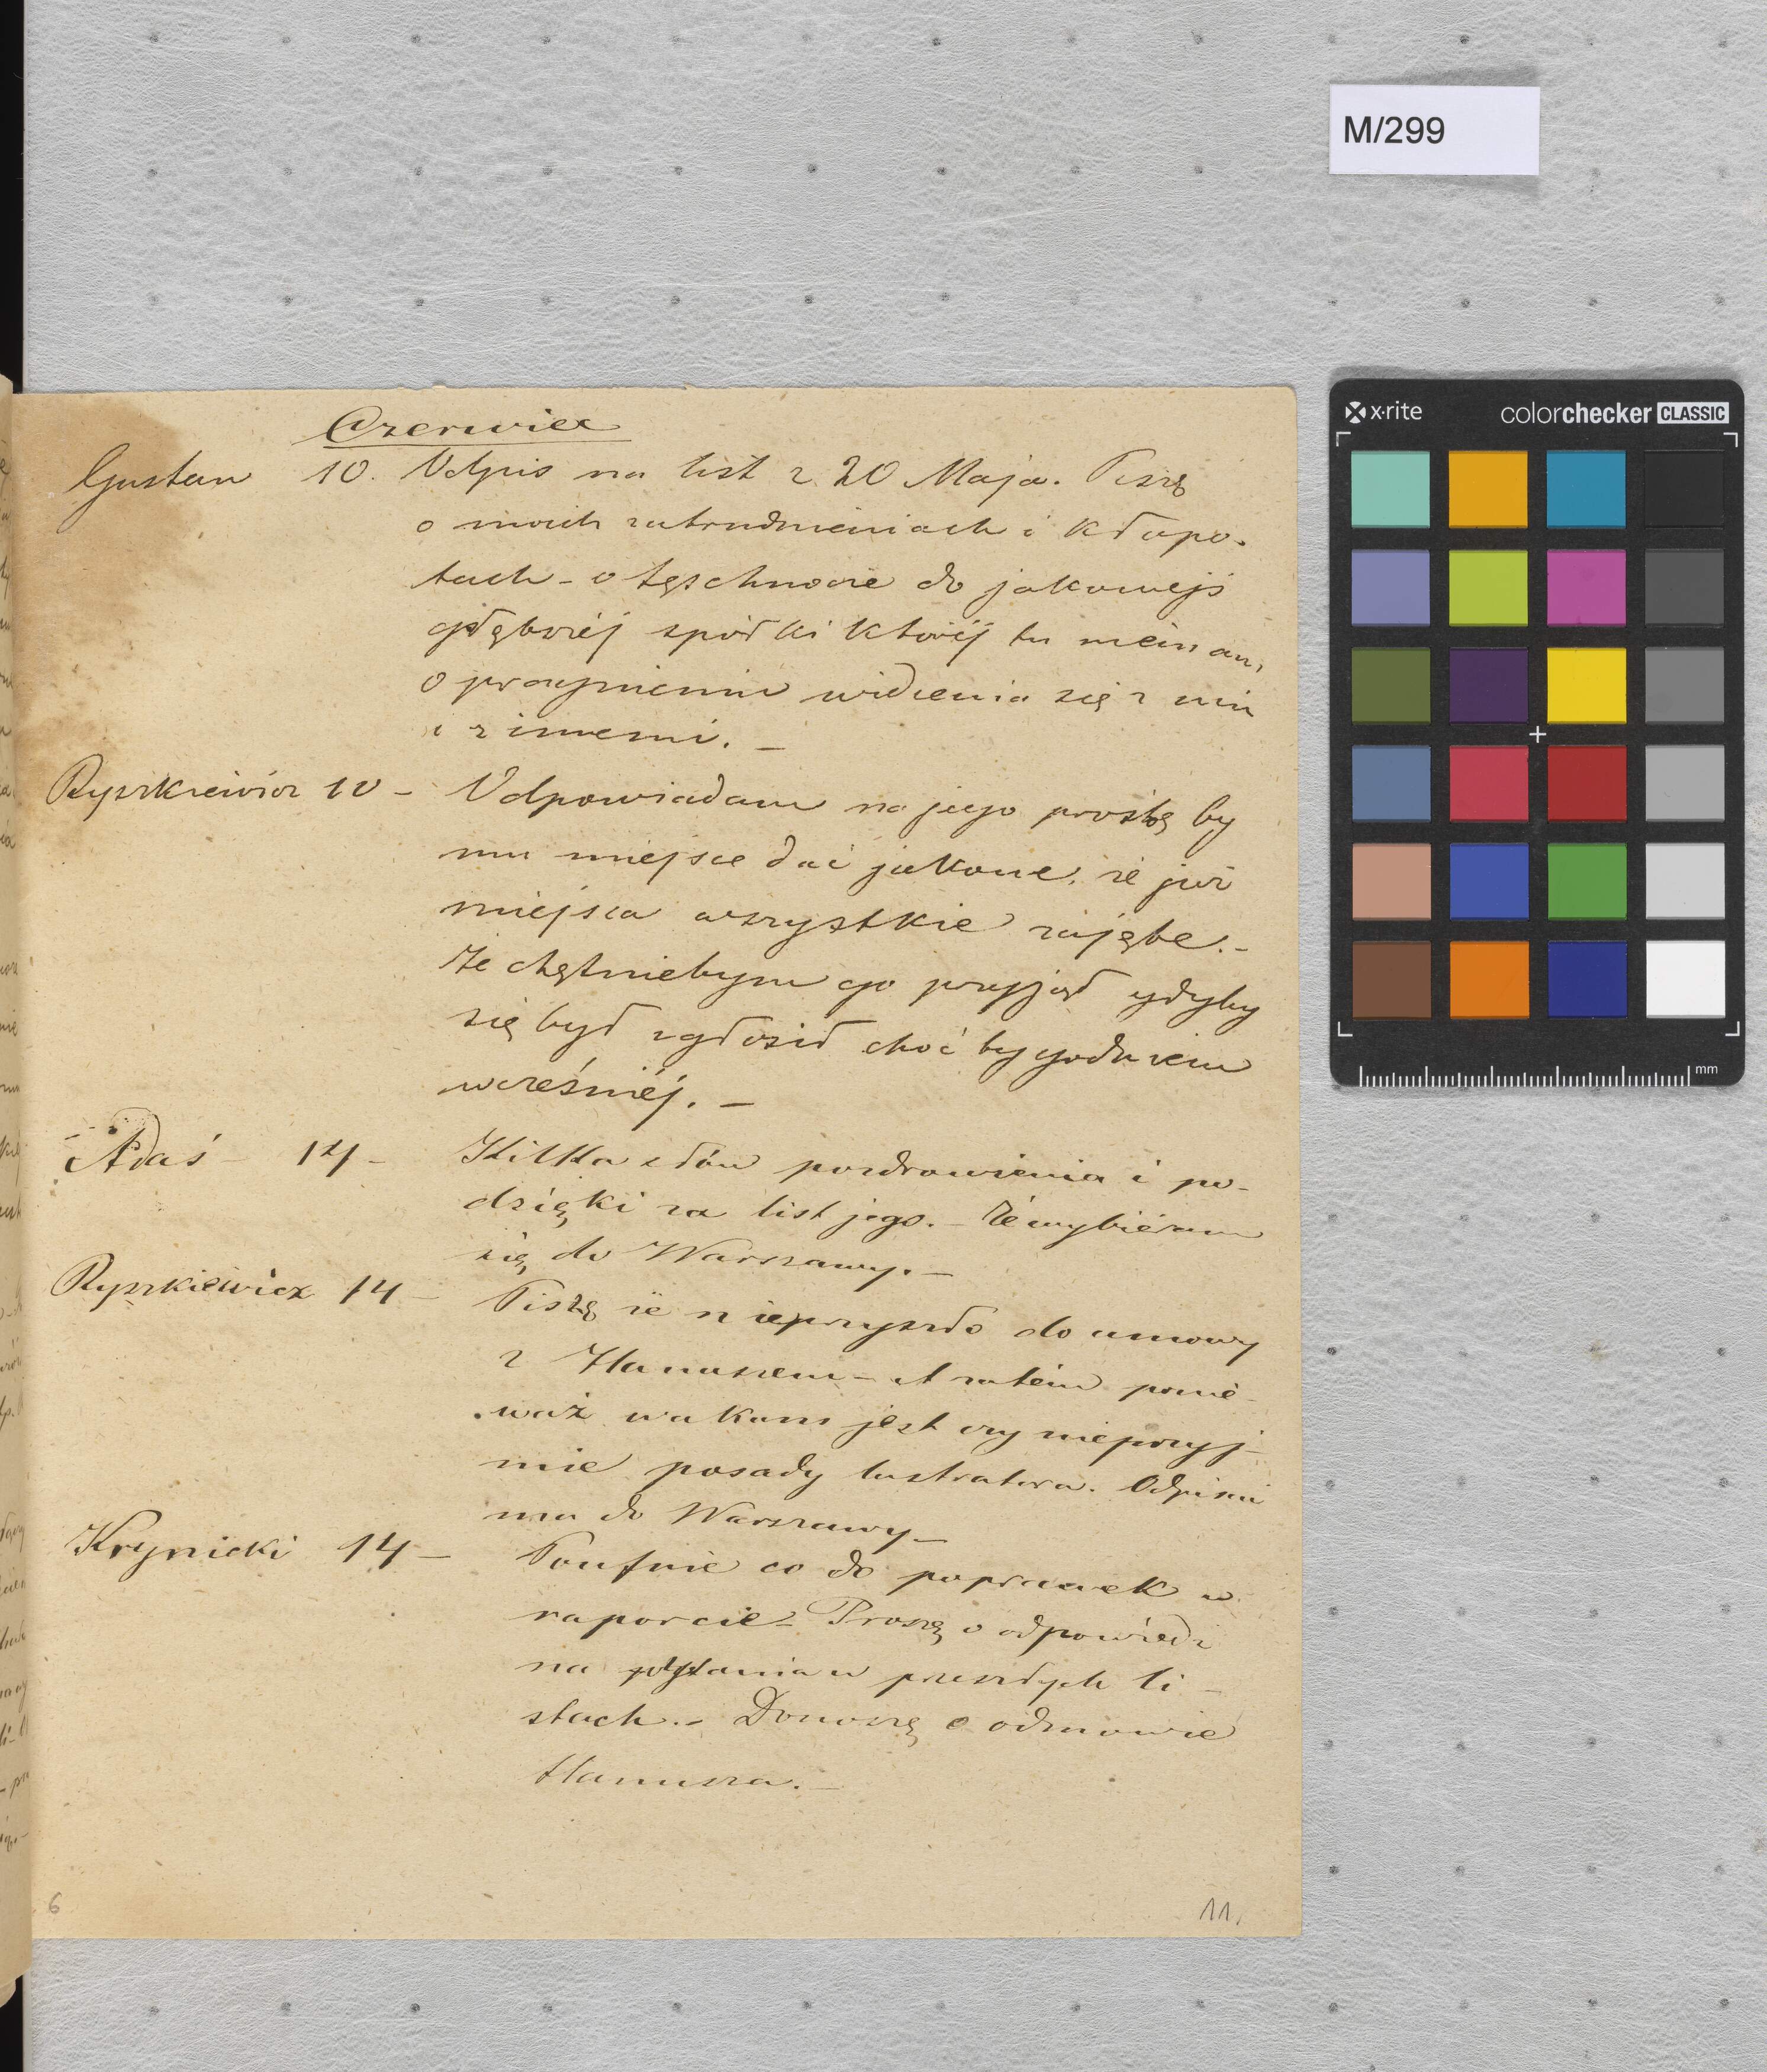 M/299
x·rite colorchecker CLASSIC
mm
Czerwiec
Gustaw 10. Odpis na list z 20 Maja. Piszę
o moich zatrudnieniach i kłopo-
tach - o tęschnocie do jakowejś
głębszéj spółki któréj tu niemam,
o pragnieniu widzenia się z nim
i z innemi. -
Ryszkiewicz 10 - Odpowiadam na jego prośbę by
mu miejsce dać jakowe, że już
miejsca wszystkie zajęte. -
Że chętniebym go przyjął gdyby
się był zgłosił choć by godziną
wcześniéj. -
Adaś - 14 - Kilka słów pozdrowienia i po-
dzięki za list jego. - Że wybiéram
się do Warszawy. -
Ryszkiewicz 14 - Piszę że nieprzyszło do umowy
z Hanuszem - A zatém ponie-
waż wakans jest czy nieprzyj-
mie posady lustratora. Odpis
ma do Warszawy -
Krynicki 14 - Poufnie co do poprawek w
raporcie - Proszę o odpowiedź
na pytania w przeszłych li-
stach. - Donoszę o odmowie
Hanusza. -
6
11.